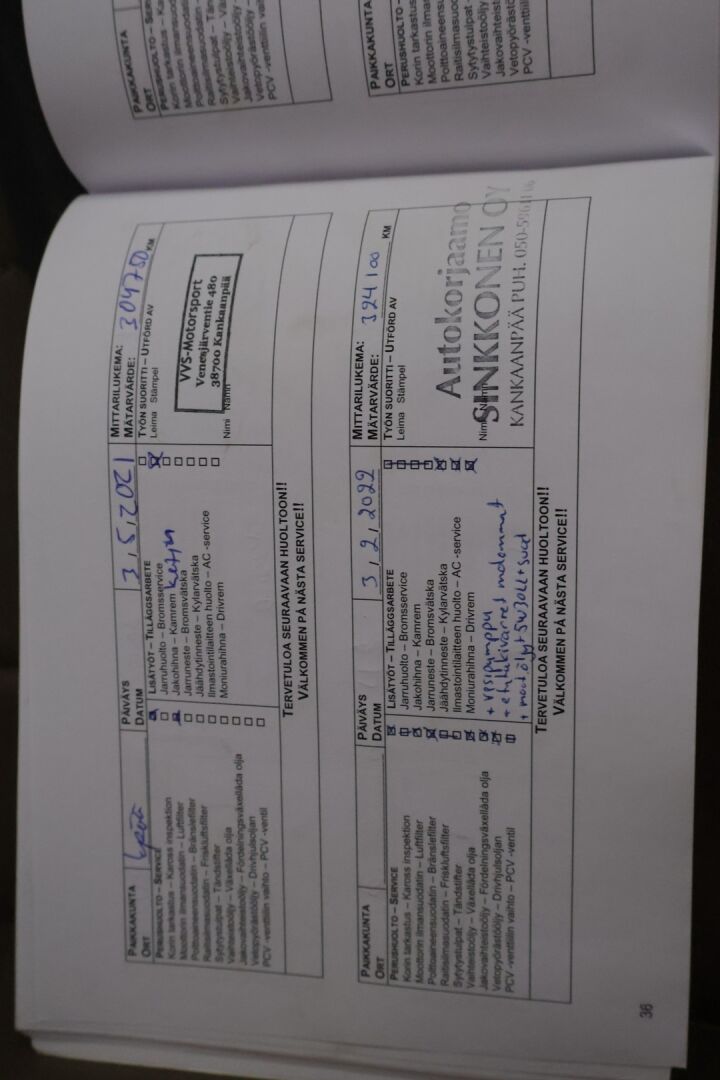 PAIKKAKUNTA
ORT
PÄIVÄYS
DATUM
3.5.2021
MITTARILUKEMA:
MÄTARVÄRDE:
304750 KM
PERUSHUOLTO – SERVICE
Korin tarkastus – Kaross inspektion
Moottorin ilmansuodatin – Luftfilter
Polttoaineensuodatin – Bränslefilter
Raitisilmasuodatin – Friskluftsfilter
Sytytystulpat – Tändstifter
Vaihteistoöljy – Växellåda olja
Jakovaihteistoöljy – Fördelningsväxellåda olja
Vetopyörästööljy – Drivhjulsoljan
PCV -venttiilin vaihto – PCV -ventil
LISÄTYÖT – TILLÄGGSARBETE
Jarruhuolto – Bromsservice
Jakohihna – Kamrem ketju
Jarruneste – Bromsvätska
Jäähdytinneste – Kylarvätska
Ilmastointilaitteen huolto – AC -service
Moniurahihna – Drivrem
TYÖN SUORITTI – UTFÖRD AV
Leima Stämpel
VVS-Motorsport
Venesjärventie 480
38700 Kankaanpää
Nimi Namn
TERVETULOA SEURAAVAAN HUOLTOON!!
VÄLKOMMEN PÅ NÄSTA SERVICE!!
PAIKKAKUNTA
ORT
PÄIVÄYS
DATUM
3.2.2022
MITTARILUKEMA:
MÄTARVÄRDE:
324100 KM
PERUSHUOLTO – SERVICE
Korin tarkastus – Kaross inspektion
Moottorin ilmansuodatin – Luftfilter
Polttoaineensuodatin – Bränslefilter
Raitisilmasuodatin – Friskluftsfilter
Sytytystulpat – Tändstifter
Vaihteistoöljy – Växellåda olja
Jakovaihteistoöljy – Fördelningsväxellåda olja
Vetopyörästööljy – Drivhjulsoljan
PCV -venttiilin vaihto – PCV -ventil
LISÄTYÖT – TILLÄGGSARBETE
Jarruhuolto – Bromsservice
Jakohihna – Kamrem
Jarruneste – Bromsvätska
Jäähdytinneste – Kylarvätska
Ilmastointilaitteen huolto – AC -service
Moniurahihna – Drivrem
+ vesipumppu
+ etutukivarret molemmat
+ moot.öljyt 5W30LL + suod
TYÖN SUORITTI – UTFÖRD AV
Leima Stämpel
Autokorjaamo
SINKKONEN OY
KANKAANPÄÄ PUH.
Nimi Namn
TERVETULOA SEURAAVAAN HUOLTOON!!
VÄLKOMMEN PÅ NÄSTA SERVICE!!
36
PAIKKAKUNTA
ORT
PERUSHUOLTO – SERV
Korin tarkastus – Ka
Moottorin ilmansuod
Polttoaineensuodati
Raitisilmasuodatin
Sytytystulpat – Tän
Vaihteistoöljy – Väx
Jakovaihteistoöljy
Vetopyörästööljy
PCV -venttiilin va
PAIKKAKUNTA
ORT
PERUSHUOLTO –
Korin tarkastus
Moottorin ilmar
Polttoaineensu
Raitisilmasuod
Sytytystulpat
Vaihteistoöljy
Jakovaihteist
Vetopyöräst
PCV -venttii